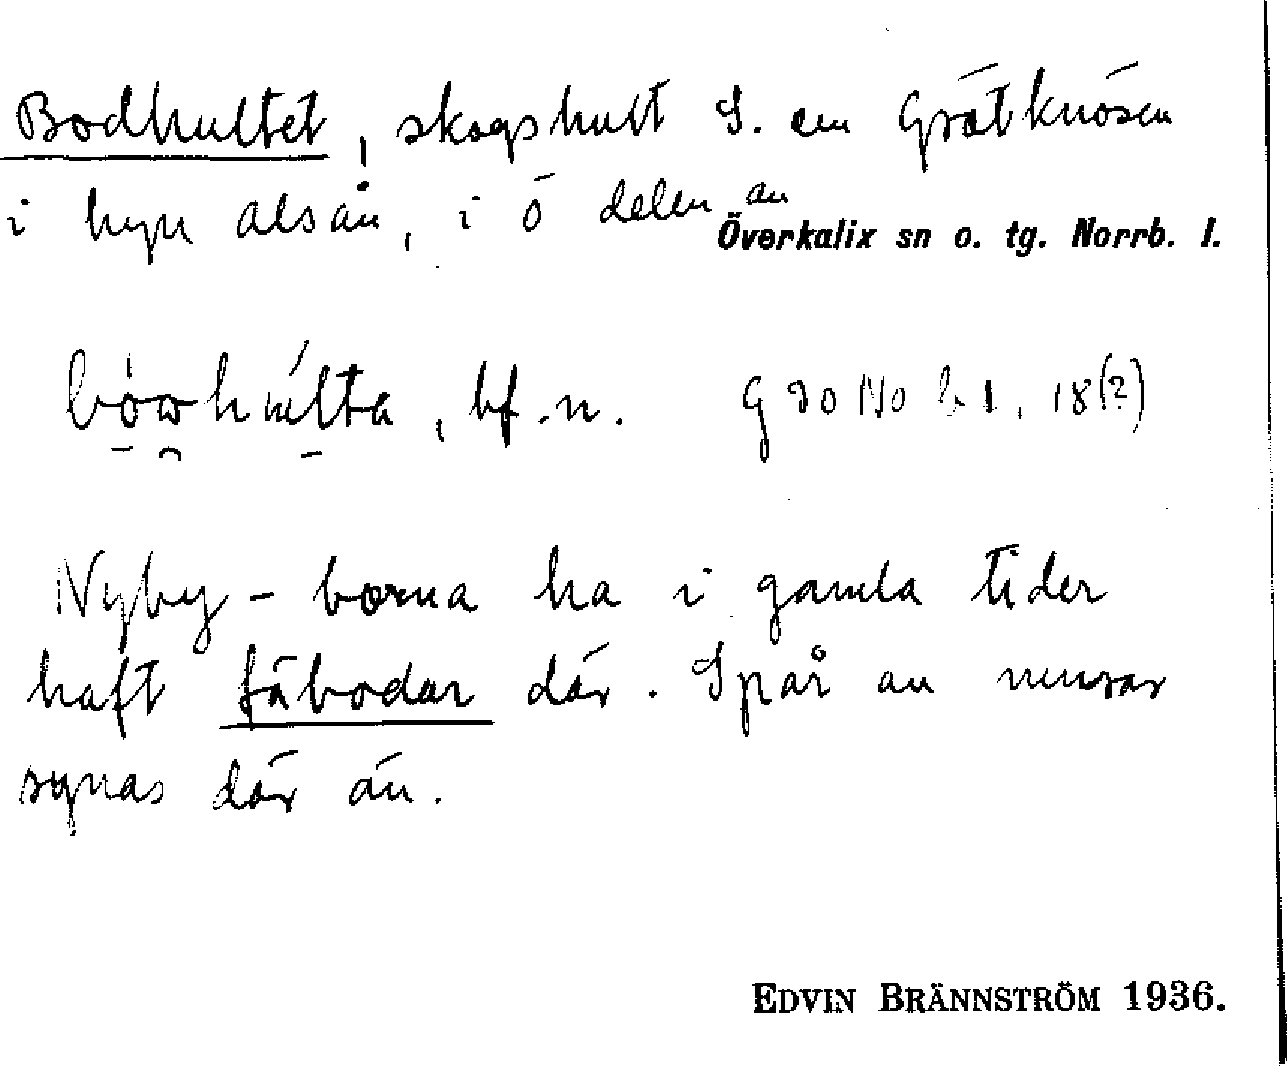 Bodhultet, skogshult S. om Grötknösen
i byn Alsån, i ö delen av
Överkalix sn o. tg. Norrb. l.
bf. n. G 30 No b 1, 18(?)
Nyby-borna ha i gamla tider
haft fäbodar där. Spår av murar
synas där än.
EDVIN BRÄNNSTRÖM 1936.